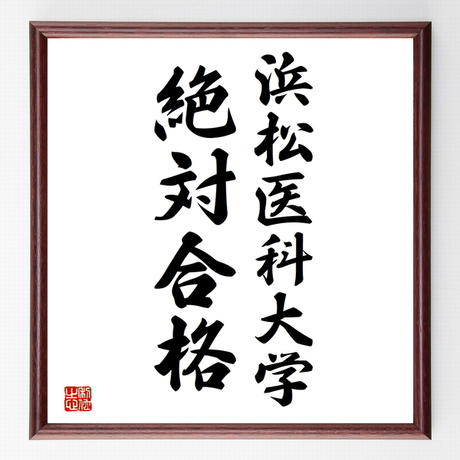 浜松医科大学
絶対合格